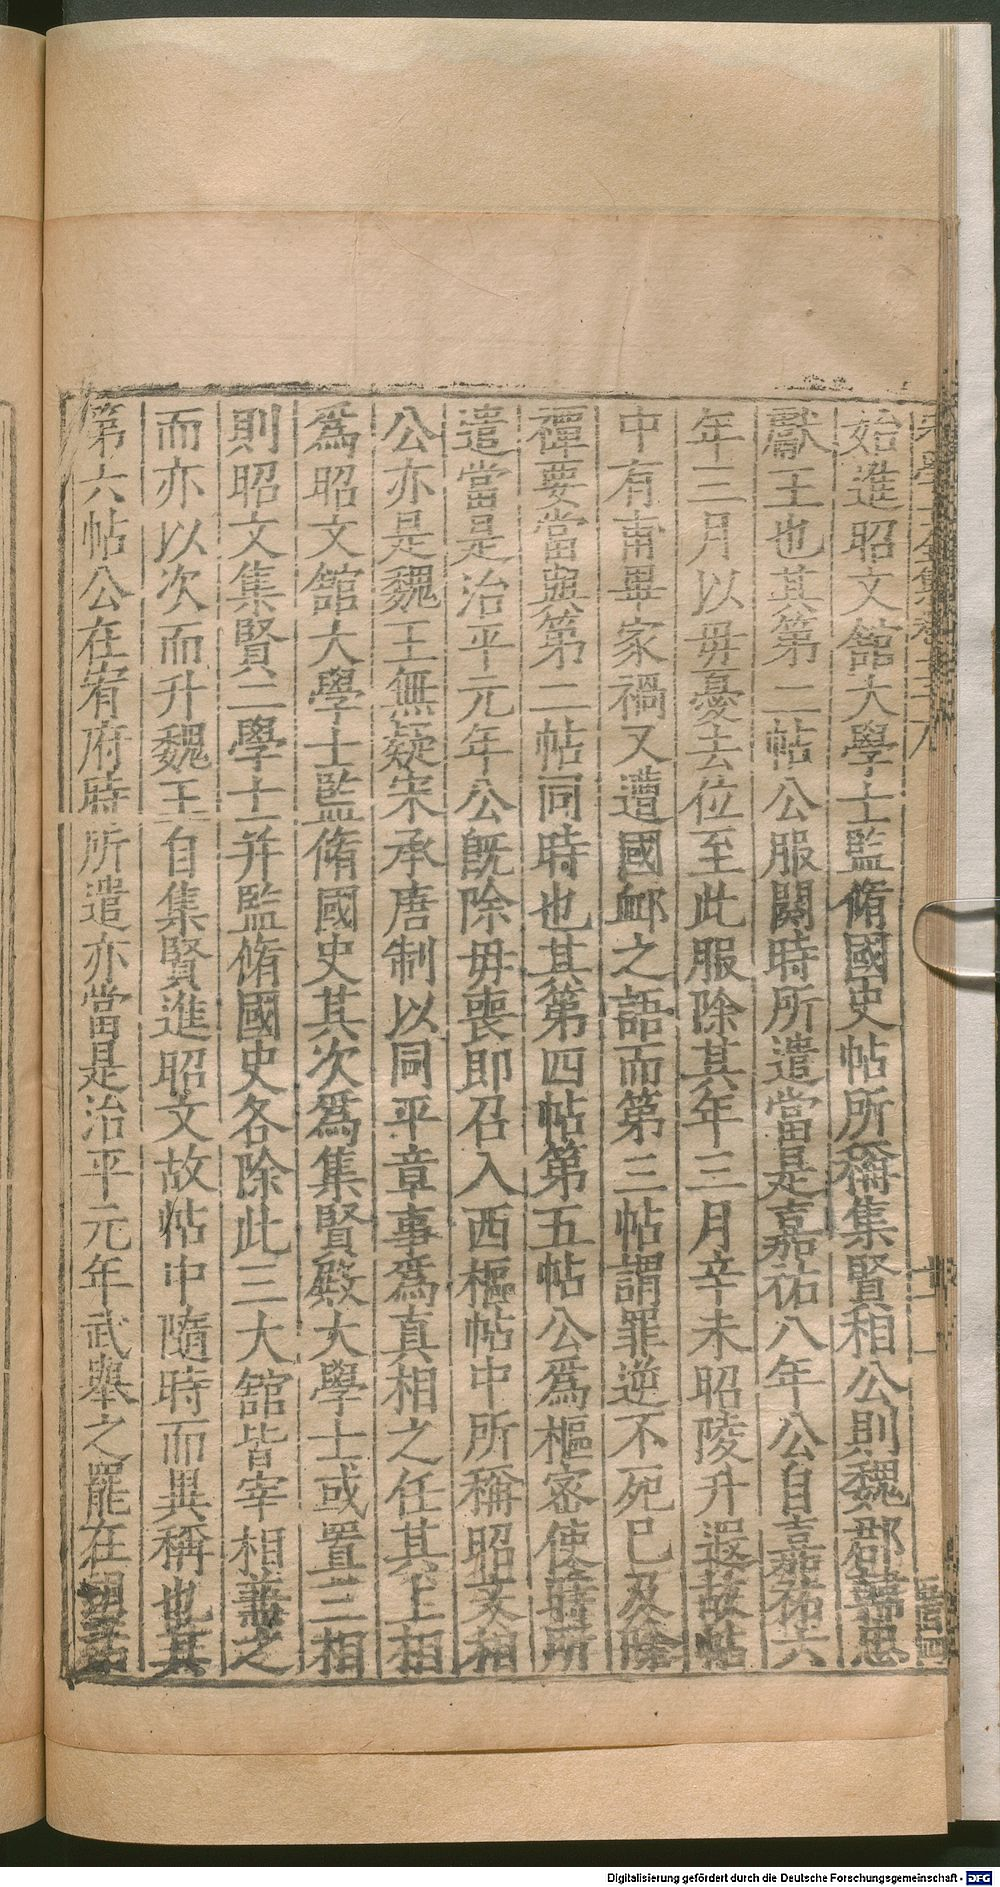 始進昭文舘大學士監脩國史帖所稱集賢相公則魏郡韓忠
獻王也其第二帖公服闋時所遣當是嘉祐八年公自嘉祐六
年三月以毋憂去位至此服除其年三月辛未昭陵升遐故帖
中有甫畢家禍又遭國衈之語而第三帖謂罪逆不死巳及除
禫要當與第二帖同時也其第四帖第五帖公爲樞密使時所
遣當是治平元年公旣除毋喪即召入西樞帖中所稱昭文相
公亦是魏王無疑宋承唐制以同平章事爲真相之任其上相
爲昭文舘大學士監脩國史其次爲集賢殿大學士或置三相
則昭文集賢二學士并監脩國史各除此三大舘皆宰相兼之
而亦以次而升魏王自集賢進昭文故帖中隨時而異稱也其
第六帖公在宥府時所遣亦當是治平元年武舉之罷在
Digitalisierung gefördert durch die Deutsche Forschungsgemeinschaft - DFG